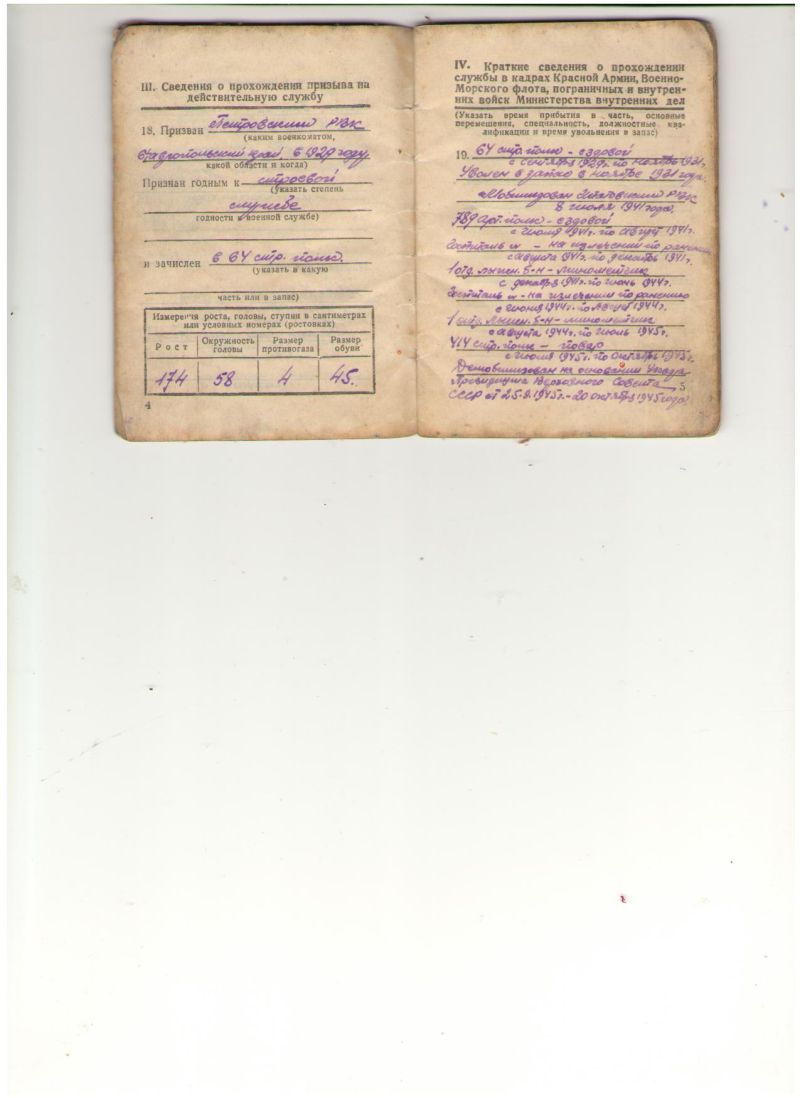 III. Сведения о прохождении призыва на
действительную службу
18. Призван Петровским РВК
(каким военкоматом,
Ставропольский край, в 1929 году,
какой области и когда)
Признан годным к строевой
(указать степень
службе
годности к военной службе)
и зачислен в 64 стр. полк.
(указать в какую
часть или в запас)
Измерения роста, головы, ступни в сантиметрах
или условных номерах (ростовках)
Рост Окружность головы Размер противогаза Размер обуви
174 58 4 45.
4
IV. Краткие сведения о прохождении
службы в кадрах Красной Армии, Военно-
Морского флота, пограничных и внутрен-
них войск Министерства внутренних дел
(Указать время прибытия в часть, основные
перемещения, специальность, должностные ква-
лификации и время увольнения в запас)
19. 64 стр. полк - ездовой
с сентября 1929г. по ноябрь 1931г.
Уволен в запас в ноябре 1931 года.
Мобилизован РВК
8 июля 1941 года.
789 арт. полк - ездовой
с июля 1941г. по август 1941г.
Госпиталь - на излечении по ранению
с августа 1941г. по декабрь 1941г.
1 отд. лыжн. б-н - минометчик
с декабря 1941г. по июнь 1944г.
Госпиталь - на излечении по ранению
с июня 1944г. по август 1944г.
1 отд. лыжн. б-н - минометчик
с августа 1944г. по июль 1945г.
414 стр. полк - повар
с июля 1945г. по октябрь 1945г.
Демобилизован на основании Указа
Президиума Верховного Совета
СССР от 25.9.1945г. - 20 октября 1945 года.
5